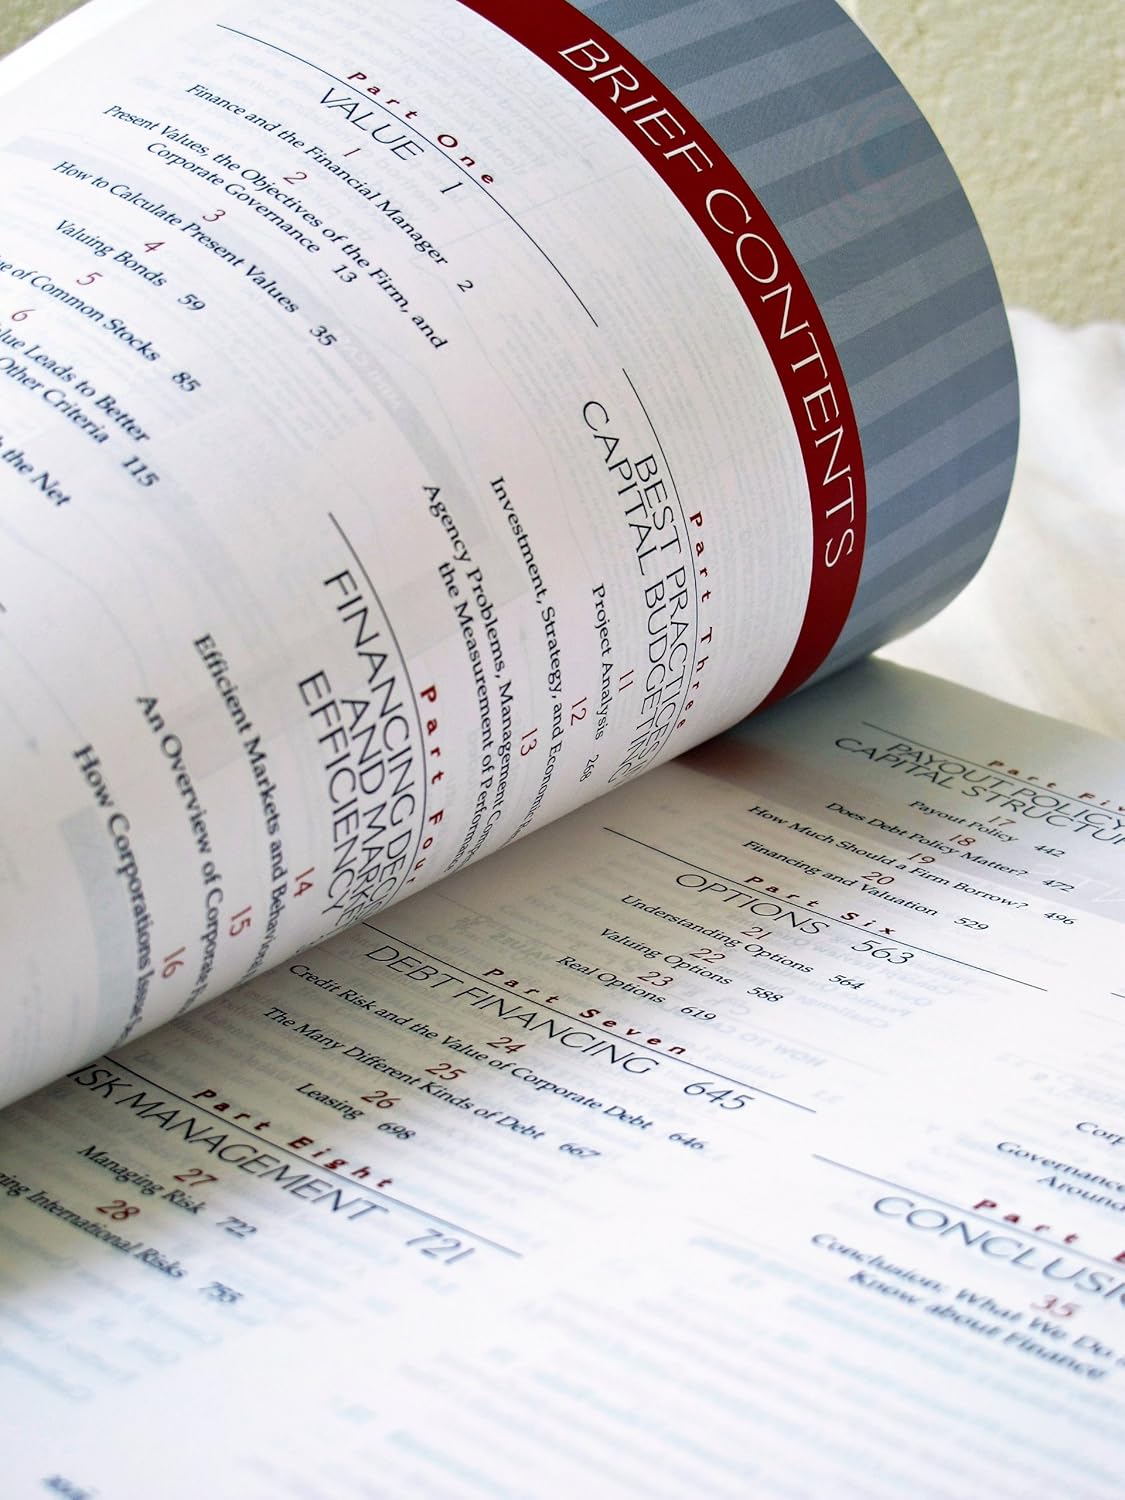 BRIEF CONTENTS
Part One
VALUE 1
1
Finance and the Financial Manager 2
2
Present Values, the Objectives of the Firm, and
Corporate Governance 13
3
How to Calculate Present Values 35
4
Valuing Bonds 59
5
of Common Stocks 85
6
Leads to Better
Other Criteria 115
the Net
Part Three
BEST PRACTICES IN
CAPITAL BUDGETING
11
Project Analysis 268
12
Investment, Strategy, and Economic
13
Agency Problems, Management
the Measurement of Performance
Part Four
FINANCING
AND MARKET
EFFICIENCY
14
Efficient Markets and
15
An Overview of Corporate
16
How Corporations Issue
Part
PAYOUT POLICY
CAPITAL
17
Payout Policy 442
18
Does Debt Policy Matter? 472
19
How Much Should a Firm Borrow? 496
20
Financing and Valuation 529
Part Six
OPTIONS 563
21
Understanding Options 564
22
Valuing Options 588
23
Real Options 619
Part Seven
DEBT FINANCING 645
24
Credit Risk and the Value of Corporate Debt 646
25
The Many Different Kinds of Debt 667
26
Leasing 698
Part Eight
MANAGEMENT 721
27
Managing Risk 722
28
International Risks 755
Governance
Around
Part
35
Conclusion: What We Do
Know about Finance